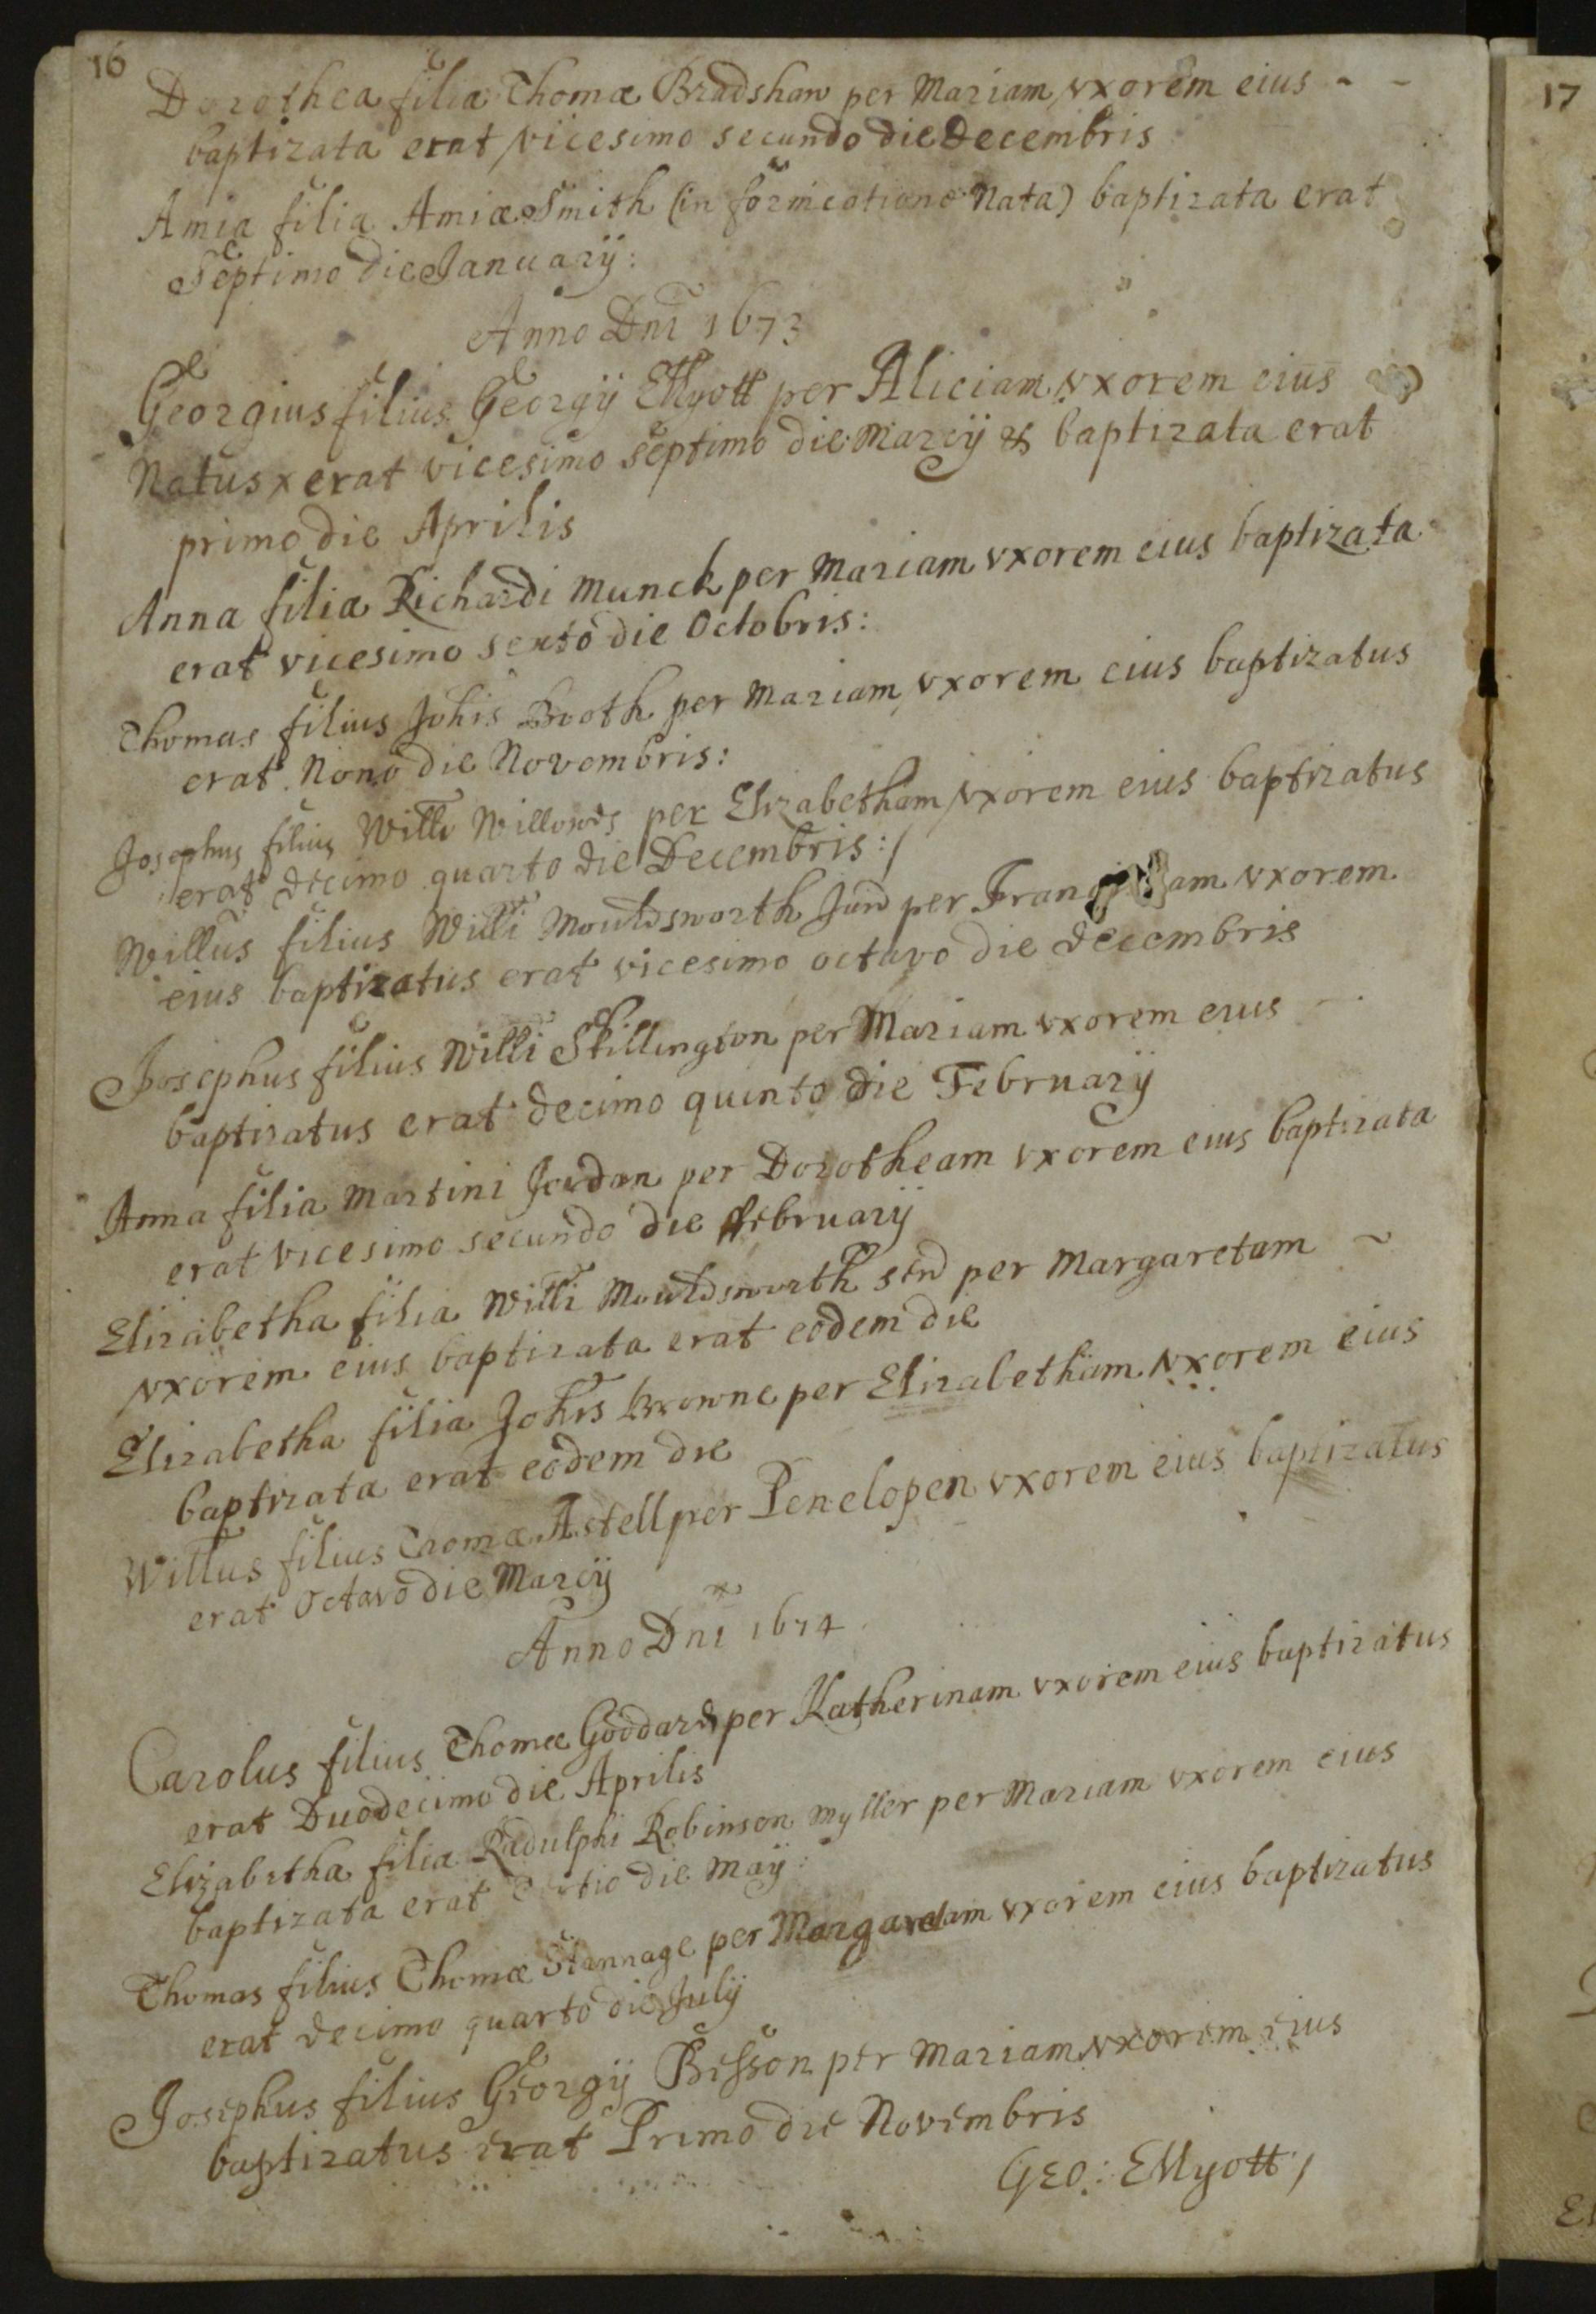 16
Dorothea filia Thomæ Bradshaw per Mariam vxorem eius - -
baptizata erat vicesimo secundo die Decembris
Amia filia Amiæ Smith (in fornicatione Nata) baptizata erat
Septimo die Januarij:
Anno Dni 1673
Georgius filius Georgij Ellyott per Aliciam vxorem eius
Natus x erat vicesimo septimo die Marcij & baptizata erat
primo die Aprilis
Anna filia Richardi Munck per Mariam vxorem eius baptizata
erat vicesimo sexto die Octobris:
Thomas filius Johis Booth per Mariam vxorem eius baptizatus
erat Nono die Novembris:
Josephus filius Willi Willows per Elizabetham vxorem eius baptizatus
erat decimo quarto die Decembris:/
Willus filius Willi Mouldsworth Jun per vxorem
eius baptizatus erat vicesimo octavo die decembris
Josephus filius Willi Skillington per Mariam vxorem eius
baptizatus erat decimo quinto die Februarij
Anna filia Martini Jordan per Dorotheam vxorem eius baptizata
erat vicesimo secundo die ffebruarij
Elizabetha filia Willi Mouldsworth sen per Margaretam ~
vxorem eius baptizata erat eodem die
Elizabetha filia Johis Browne per Elizabetham vxorem eius
baptizata erat eodem die
Willus filius Thomæ Astell per Penelopen vxorem eius baptizatus
erat Octavo die Marcij
Anno Dni 1674
Carolus filius Thomæ Goddard per Katherinam vxorem eius baptizatus
erat Duodecimo die Aprilis
Elizabetha filia Radulphi Robinson Myller per Mariam vxorem eius
baptizata erat die Maij:
Thomas filius Thomæ Stannage per Margaretam vxorem eius baptizatus
erat decimo quarto die Julij
Josephus filius Georgij Besson per Mariam vxorem eius
baptizatus erat Primo die Novembris
Geo: Ellyott /
17